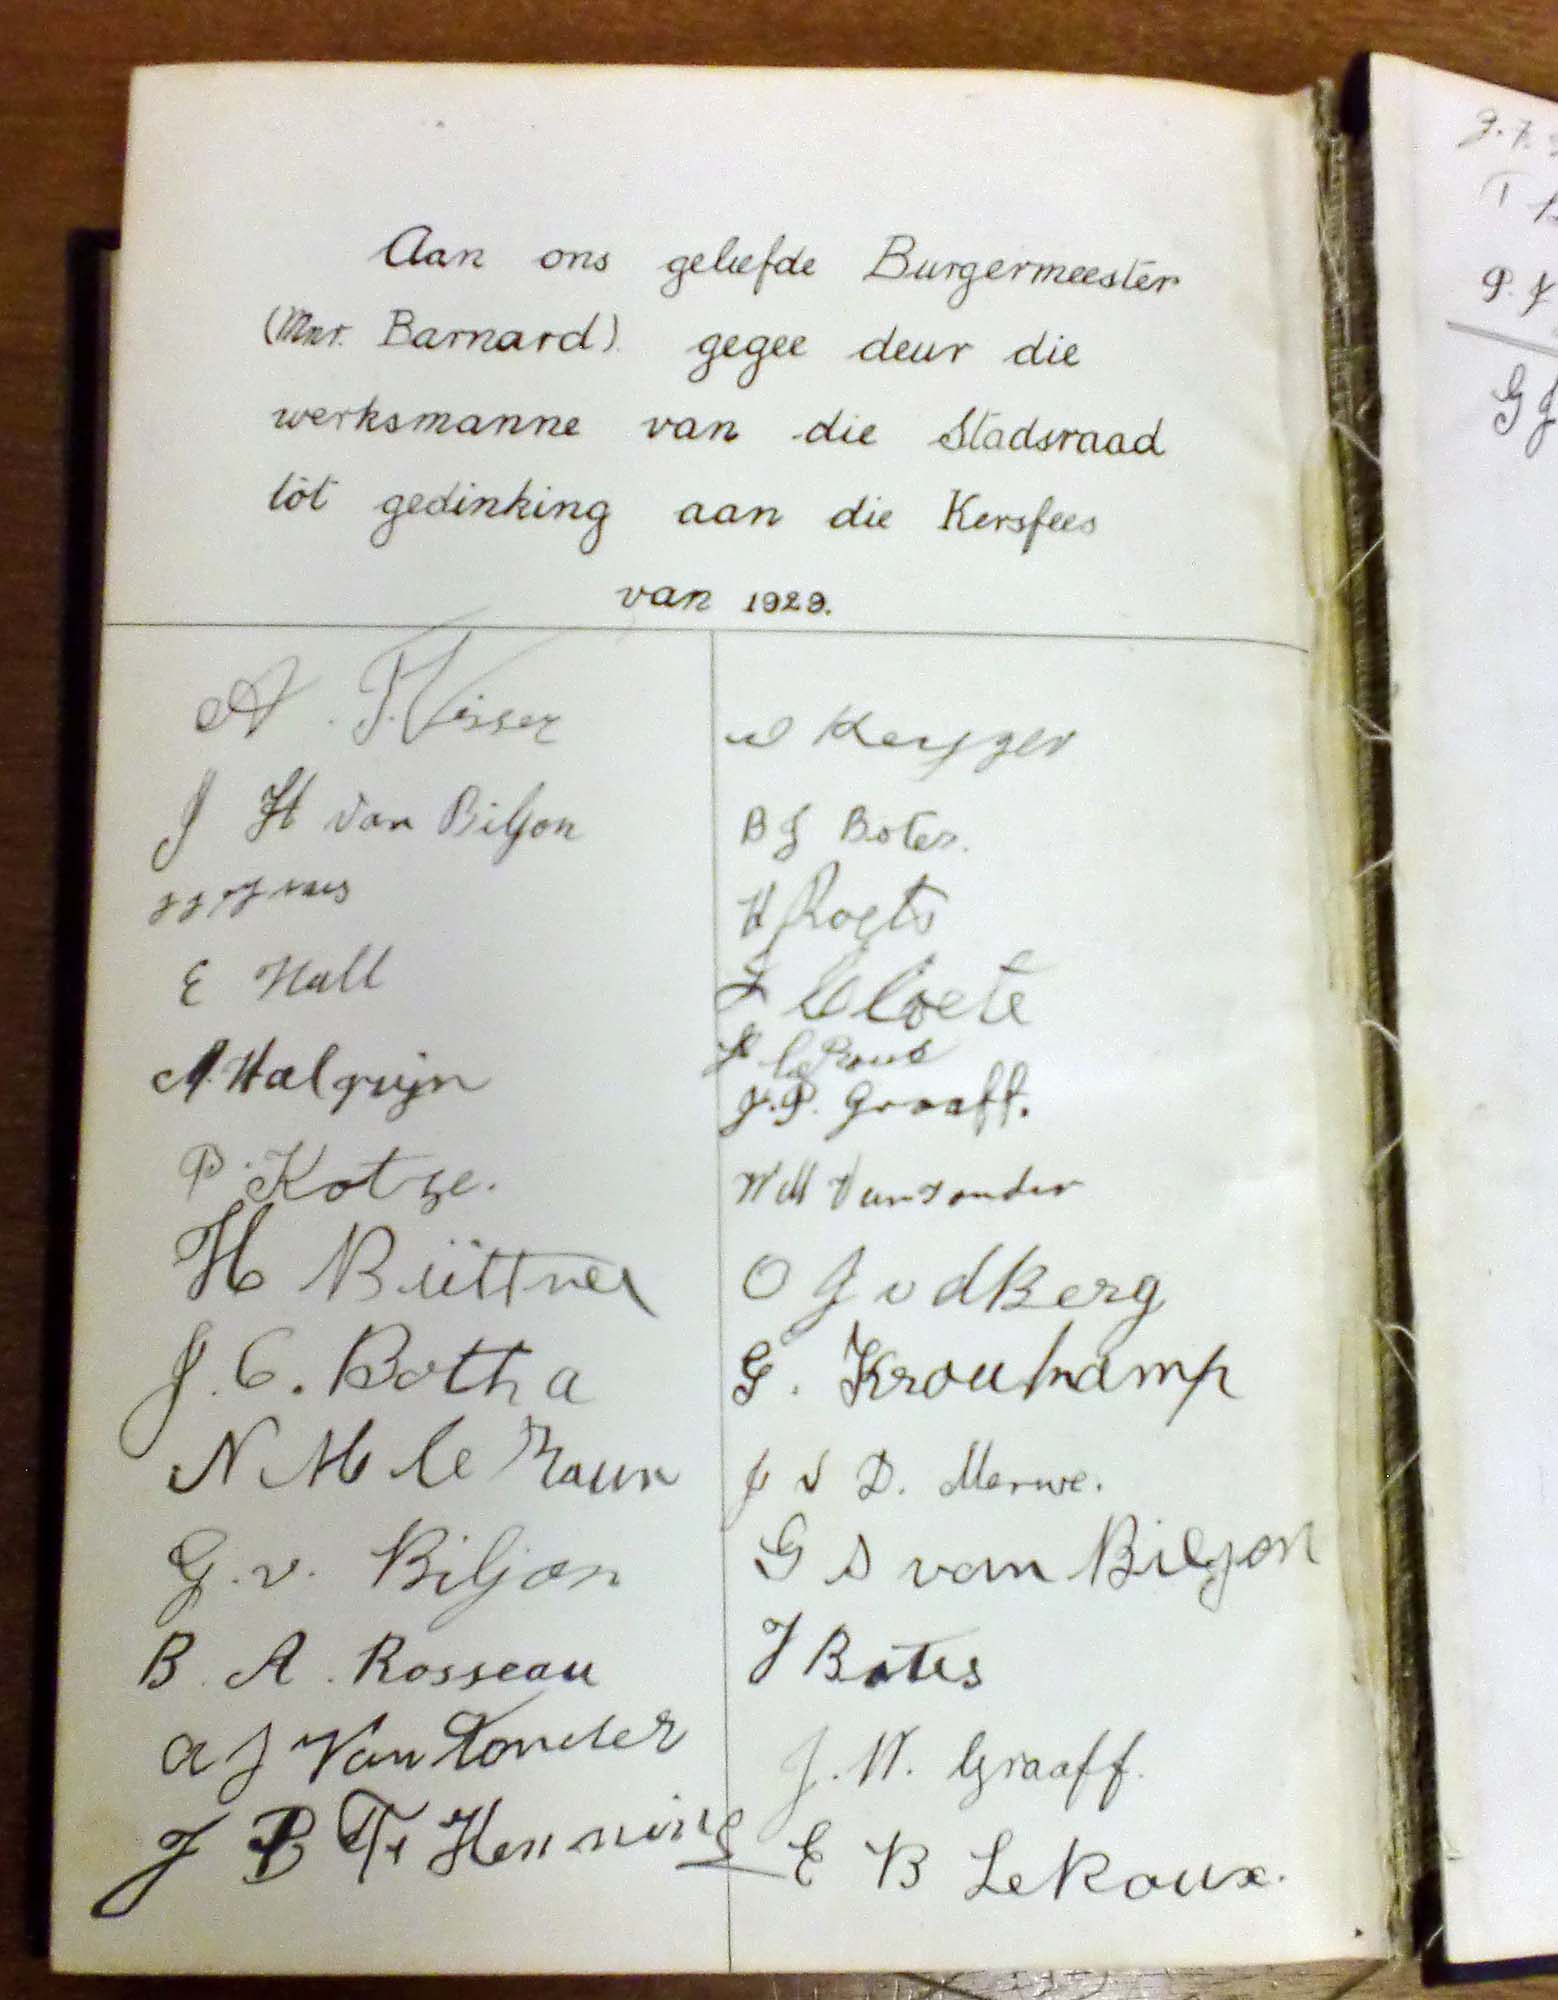 Aan ons geliefde Burgermeester
(Mnr. Barnard). gegee deur die
werksmanne van die Stadsraad
tot gedinking aan die Kersfees
van 1929.
A. F. Visser
J H van Biljon
E Hall
A. Halgrijn
P. Kotze.
H Büttner
J. C. Botha
N M le
G. v. Biljon
B. A. Rosseau
A J Van Tonder
J B Henning
Keyzer
B J Botes.
H
J Cloete
le Roux
J. P. Graaff.
W M Vantonder
O J v d Berg
G. Kroukamp
J V D. Merwe.
G S van Biljon
J Botes
J. W. Graaff.
E B Le Roux.
P. J
G J